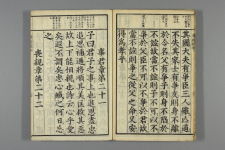 其國大夫有爭臣三人雖亡道
不失其家士有爭友則身不離
於令名父有爭子則身不陷
於不義故當不義則子不可以不
爭於父臣不可以不爭於君故
當不義則爭之從父之命又安
得爲孝乎
事君章第二十一
子曰君子之事上也進思盡忠
退思補過將順其美匡救其惡
故上下能相親也詩云心乎愛
矣遐不謂矣忠心臧之何日忘
之
喪親章第二十二